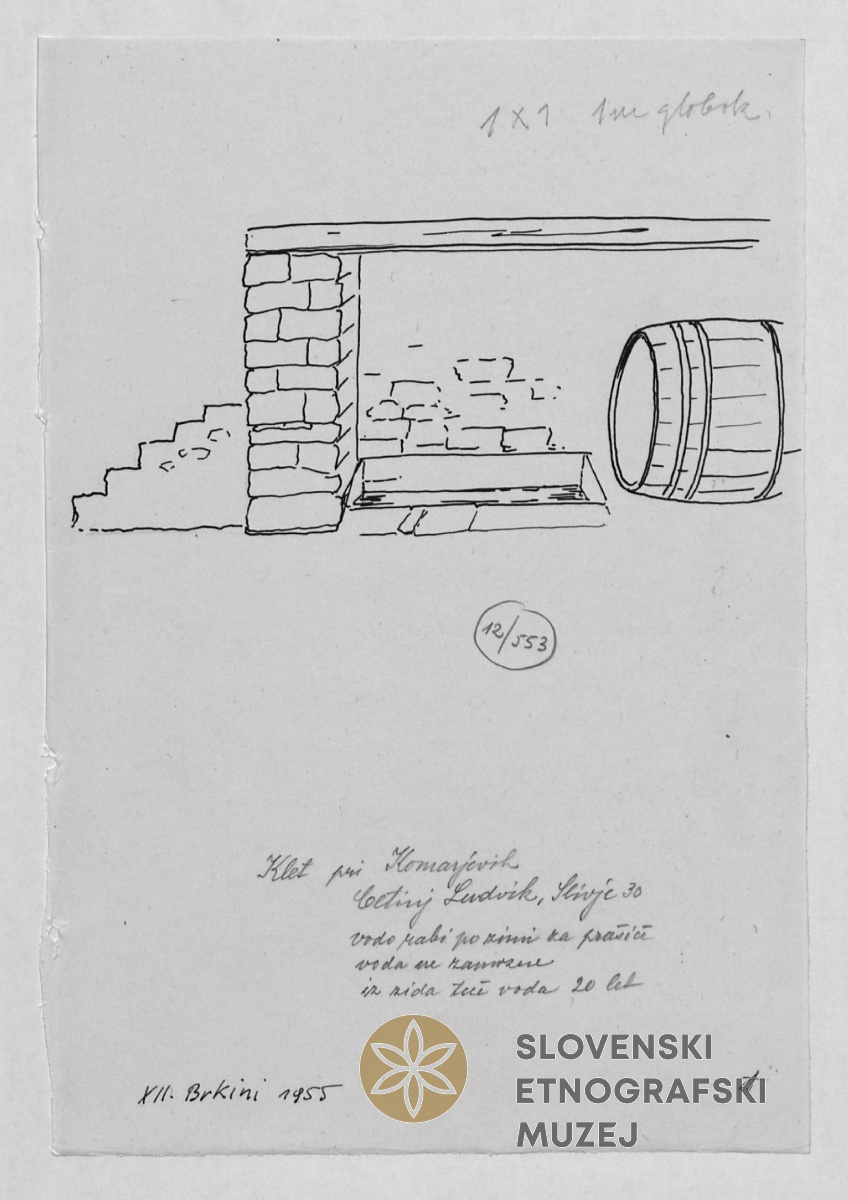 1 X 1 1m globok.
12/553
Klet pri Komarjevih
Cetinj Ludvik, Slivje 30
vodo rabi po zimi za prašiče
voda ne zamrzne
iz zida teče voda 20 let
XII. Brkini 1955
SLOVENSKI
ETNOGRAFSKI
MUZEJ